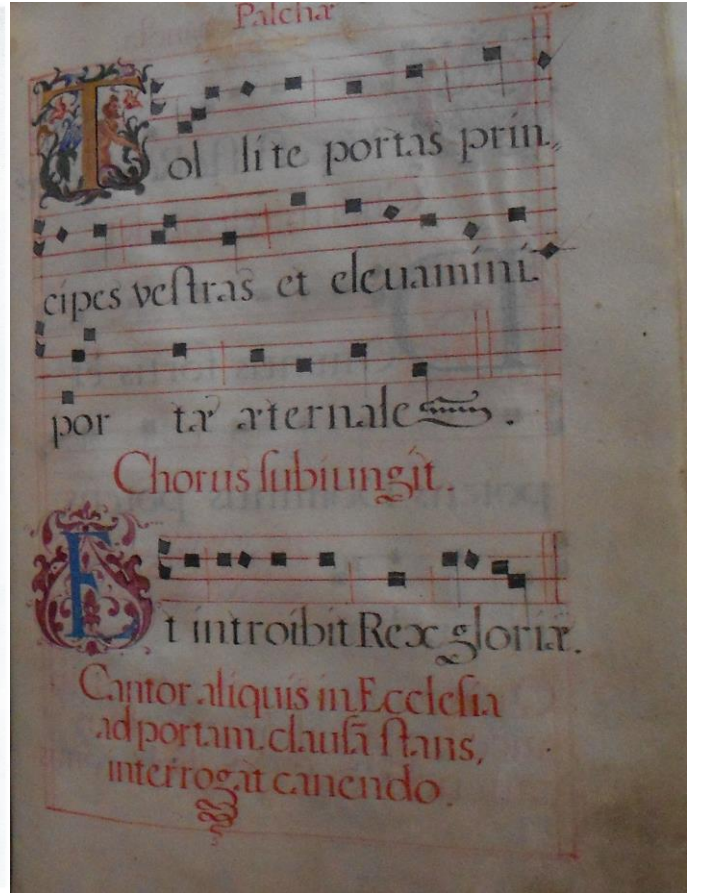 Paschæ
Tol lite portas prin,,
cipes vestras et eleuamini
por tæ æternales.
Chorus subiungit.
Et introibit Rex gloriæ.
Cantor aliquis in Ecclesia
ad portam clausã stans,
interrogat canendo.